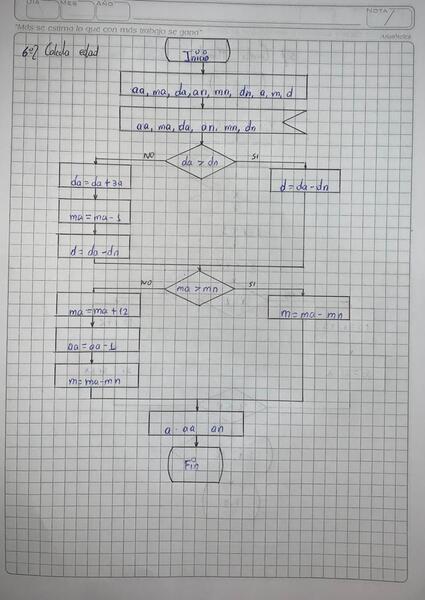 DIA MES AÑO NOTA
"Más se estima lo que con más trabajo se gana" Aristóteles
6º) Calcula edad
Inicio
aa, ma, da, an, mn, dn, a, m, d
aa, ma, da, an, mn, dn
NO da > dn SI
da = da + 30
d = da - dn
ma = ma - 1
d = da - dn
NO ma > mn SI
ma = ma + 12
m = ma - mn
aa = aa - 1
m = ma - mn
a - aa an
Fin